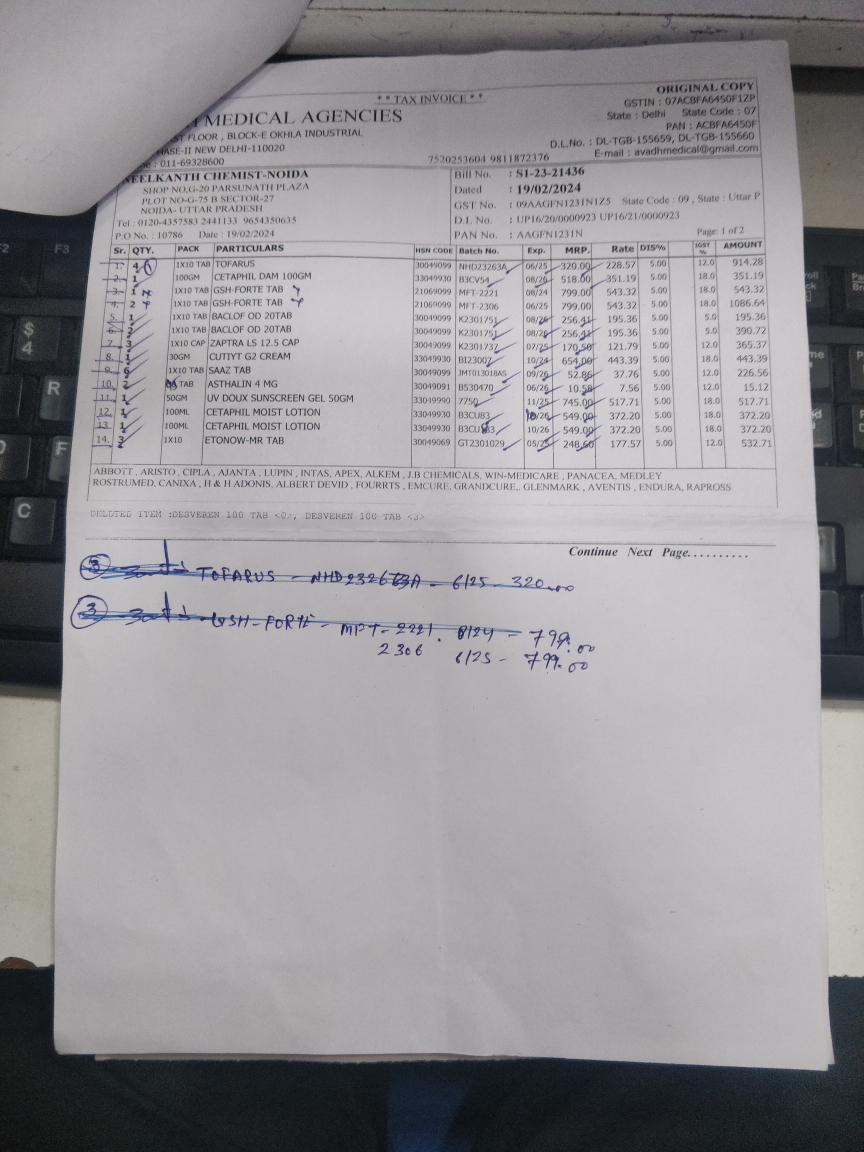 **TAX INVOICE**
ORIGINAL COPY
GSTIN : 07ACBFA6450F1ZP
MEDICAL AGENCIES
State : Delhi State Code : 07
PAN : ACBFA6450F
FLOOR , BLOCK-E OKHLA INDUSTRIAL
D.L.No. : DL-TGB-155659, DL-TGB-155660
HASE-II NEW DELHI-110020
E-mail : avadhmedical@gmail.com
: 011-69328600
7520253604 9811872376
NEELKANTH CHEMIST-NOIDA
SHOP NO,G-20 PARSUNATH PLAZA
PLOT NO-G-75 B SECTOR-27
NOIDA- UTTAR PRADESH
Tel : 0120-4357583 2441133 9654350635
P.O No. : 10786 Date : 19/02/2024
Bill No. : S1-23-21436
Dated : 19/02/2024
GST No. : 09AAGFN1231N1Z5 State Code : 09 , State : Uttar P
D.L No. : UP16/20/0000923 UP16/21/0000923
PAN No. : AAGFN1231N
Page: 1 of 2
Sr. QTY. PACK PARTICULARS HSN CODE Batch No. Exp. MRP. Rate DIS% IGST % AMOUNT
1. 4 1X10 TAB TOFARUS 30049099 NHD23263A 06/25 320.00 228.57 5.00 12.0 914.28
2. 1 100GM CETAPHIL DAM 100GM 33049930 B3CV54 08/26 518.00 351.19 5.00 18.0 351.19
3. 1 1X10 TAB GSH-FORTE TAB 21069099 MFT-2221 08/24 799.00 543.32 5.00 18.0 543.32
4. 2 1X10 TAB GSH-FORTE TAB 21069099 MFT-2306 06/25 799.00 543.32 5.00 18.0 1086.64
5. 1 1X10 TAB BACLOF OD 20TAB 30049099 K2301751 08/26 256.41 195.36 5.00 5.0 195.36
6. 2 1X10 TAB BACLOF OD 20TAB 30049099 K2301751 08/26 256.41 195.36 5.00 5.0 390.72
7. 3 1X10 CAP ZAPTRA LS 12.5 CAP 30049099 K2301737 07/25 170.50 121.79 5.00 12.0 365.37
8. 1 30GM CUTIYT G2 CREAM 33049930 BI23007 10/24 654.00 443.39 5.00 18.0 443.39
9. 6 1X10 TAB SAAZ TAB 30049099 JMT013018AS 09/26 52.86 37.76 5.00 12.0 226.56
10. 2 TAB ASTHALIN 4 MG 30049091 B530470 06/26 10.58 7.56 5.00 12.0 15.12
11. 1 50GM UV DOUX SUNSCREEN GEL 50GM 33049990 7750 11/25 745.00 517.71 5.00 18.0 517.71
12. 1 100ML CETAPHIL MOIST LOTION 33049930 B3CU83 10/26 549.00 372.20 5.00 18.0 372.20
13. 1 100ML CETAPHIL MOIST LOTION 33049930 10/26 549.00 372.20 5.00 18.0 372.20
14. 3 1X10 ETONOW-MR TAB 30049069 GT2301029 05/25 248.60 177.57 5.00 12.0 532.71
ABBOTT , ARISTO , CIPLA , AJANTA , LUPIN , INTAS, APEX, ALKEM , J.B CHEMICALS, WIN-MEDICARE , PANACEA, MEDLEY
ROSTRUMED, CANIXA , H & H ADONIS, ALBERT DEVID , FOURRTS , EMCURE, GRANDCURE,. GLENMARK , AVENTIS , ENDURA, RAPROSS
DELETED ITEM :DESVEREN 100 TAB <0>, DESVEREN 100 TAB <3>
Continue Next Page..........
3 TOFARUS - 6/25 - 320.00
3 GSH-FORTE - MFT-2221. 8/24 - 799.00
2306 6/25 - 799.00